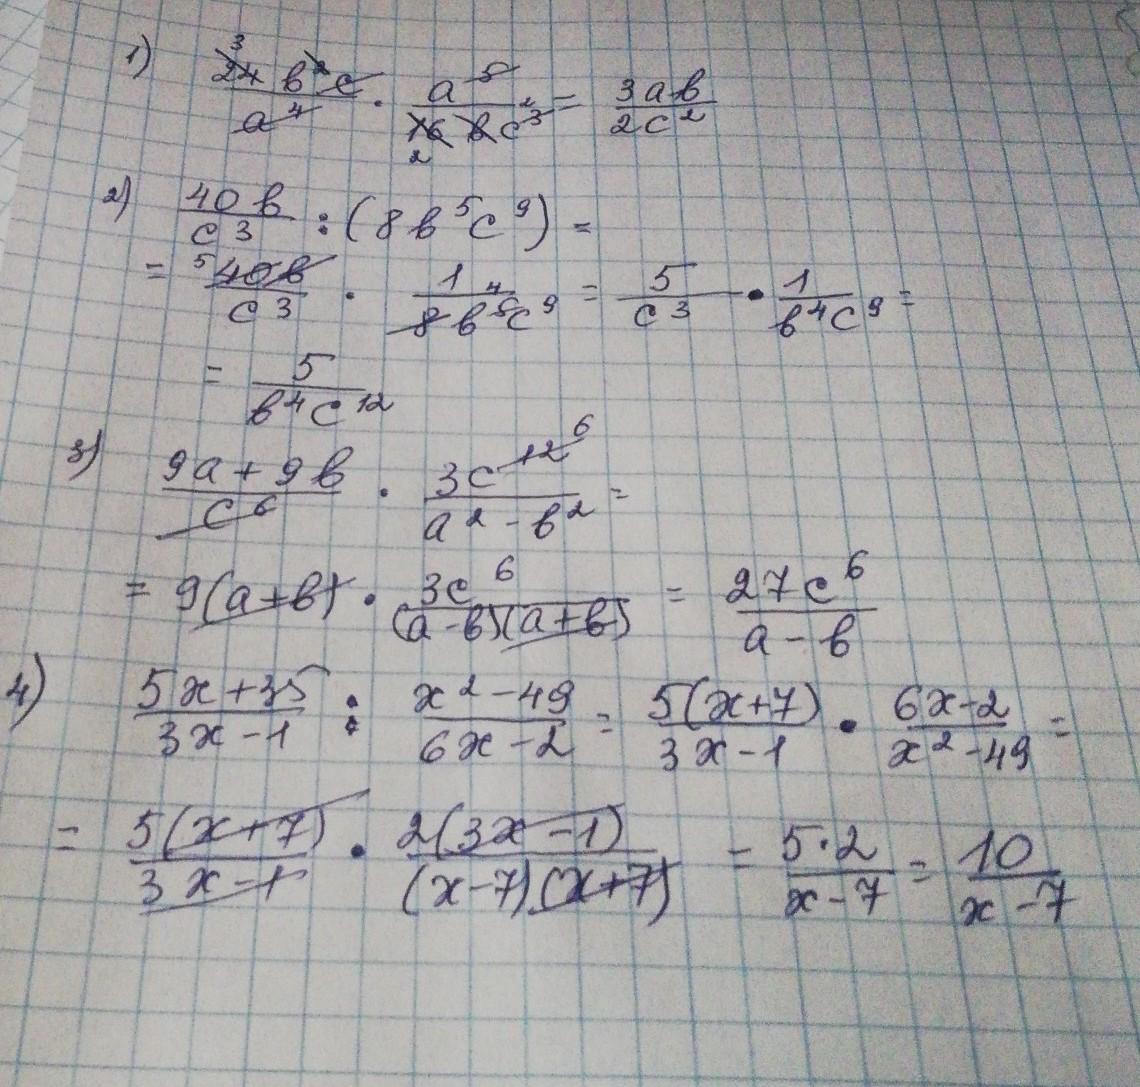 1) 24³b²c/a⁴ · a⁵/16₂bc³² = 3ab/2c²
2) 40b/c³ : (8b⁵c⁹) =
= ⁵40b/c³ · 1/8b⁵⁴c⁹ = 5/c³ · 1/b⁴c⁹ =
= 5/b⁴c¹²
3) 9a+9b/c⁶ · 3c¹²⁶/a²-b² =
= 9(a+b) · 3c⁶/(a-b)(a+b) = 27c⁶/a-b
4) 5x+35/3x-1 : x²-49/6x-2 = 5(x+7)/3x-1 · 6x-2/x²-49 =
= 5(x+7)/3x-1 · 2(3x-1)/(x-7)(x+7) = 5·2/x-7 = 10/x-7